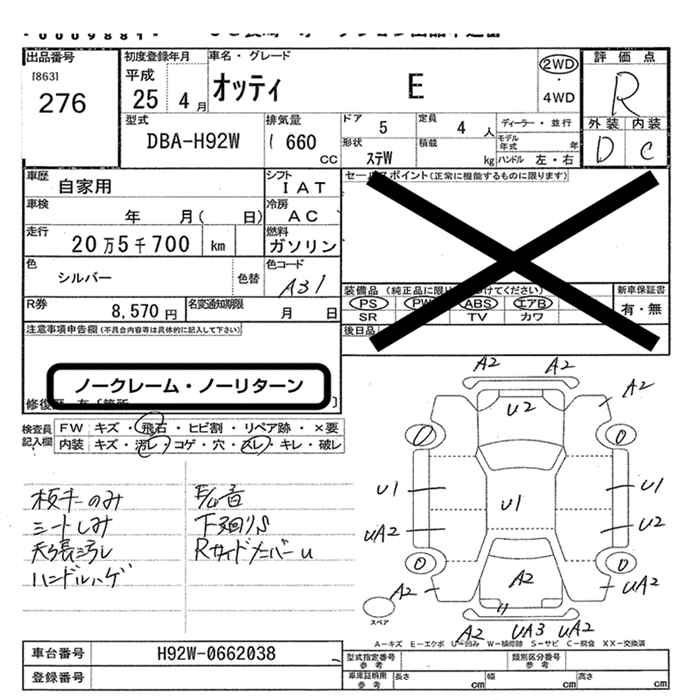 出品番号
[863]
276
初度登録年月
平成
25 4月
車名・グレード
オッティ E
2WD
・
4WD
評価点
R
外装 内装
D C
型式
DBA-H92W
排気量
660
CC
ドア 5
定員 4 人
形状 ステW
積載 kg
ディーラー・並行
モデル年式 年
ハンドル 左・右
車歴
自家用
シフト
IAT
セールスポイント(正常に機能するものに限ります)
車検 年 月( 日)
冷房
AC
走行
20万5千700 km
燃料
ガソリン
色
シルバー
色替
色コード
A31
装備品 (純正品に限り
けてください)
PS PW ABS エアB
SR TV カワ
新車保証書
有・無
R券
8,570円
名変通知期限
月 日
後日品
注意事項申告欄(不具合内容等は具体的に記入して下さい)
ノークレーム・ノーリターン
検査員記入欄
FW キズ・飛石・ヒビ割・リペア跡・×要
内装 キズ・汚レ・コゲ・穴・スレ・キレ・破レ
板キーのみ
シートしみ
天張汚レ
ハンドルハゲ
E/G音
下廻りS
RサイドメンバーU
A2 A2
A2
U2
U1
U1
U1
UA2
U2
A2
A2
UA2
A2 UA3 UA2
スペア
A-キズ E-エクボ U-凹み W-補修跡 S-サビ C-腐食 XX-交換済
車台番号
H92W-0662038
登録番号
型式指定番号
参考
類別区分番号
参考
車庫証明用
参考
長さ cm
幅 cm
高さ cm